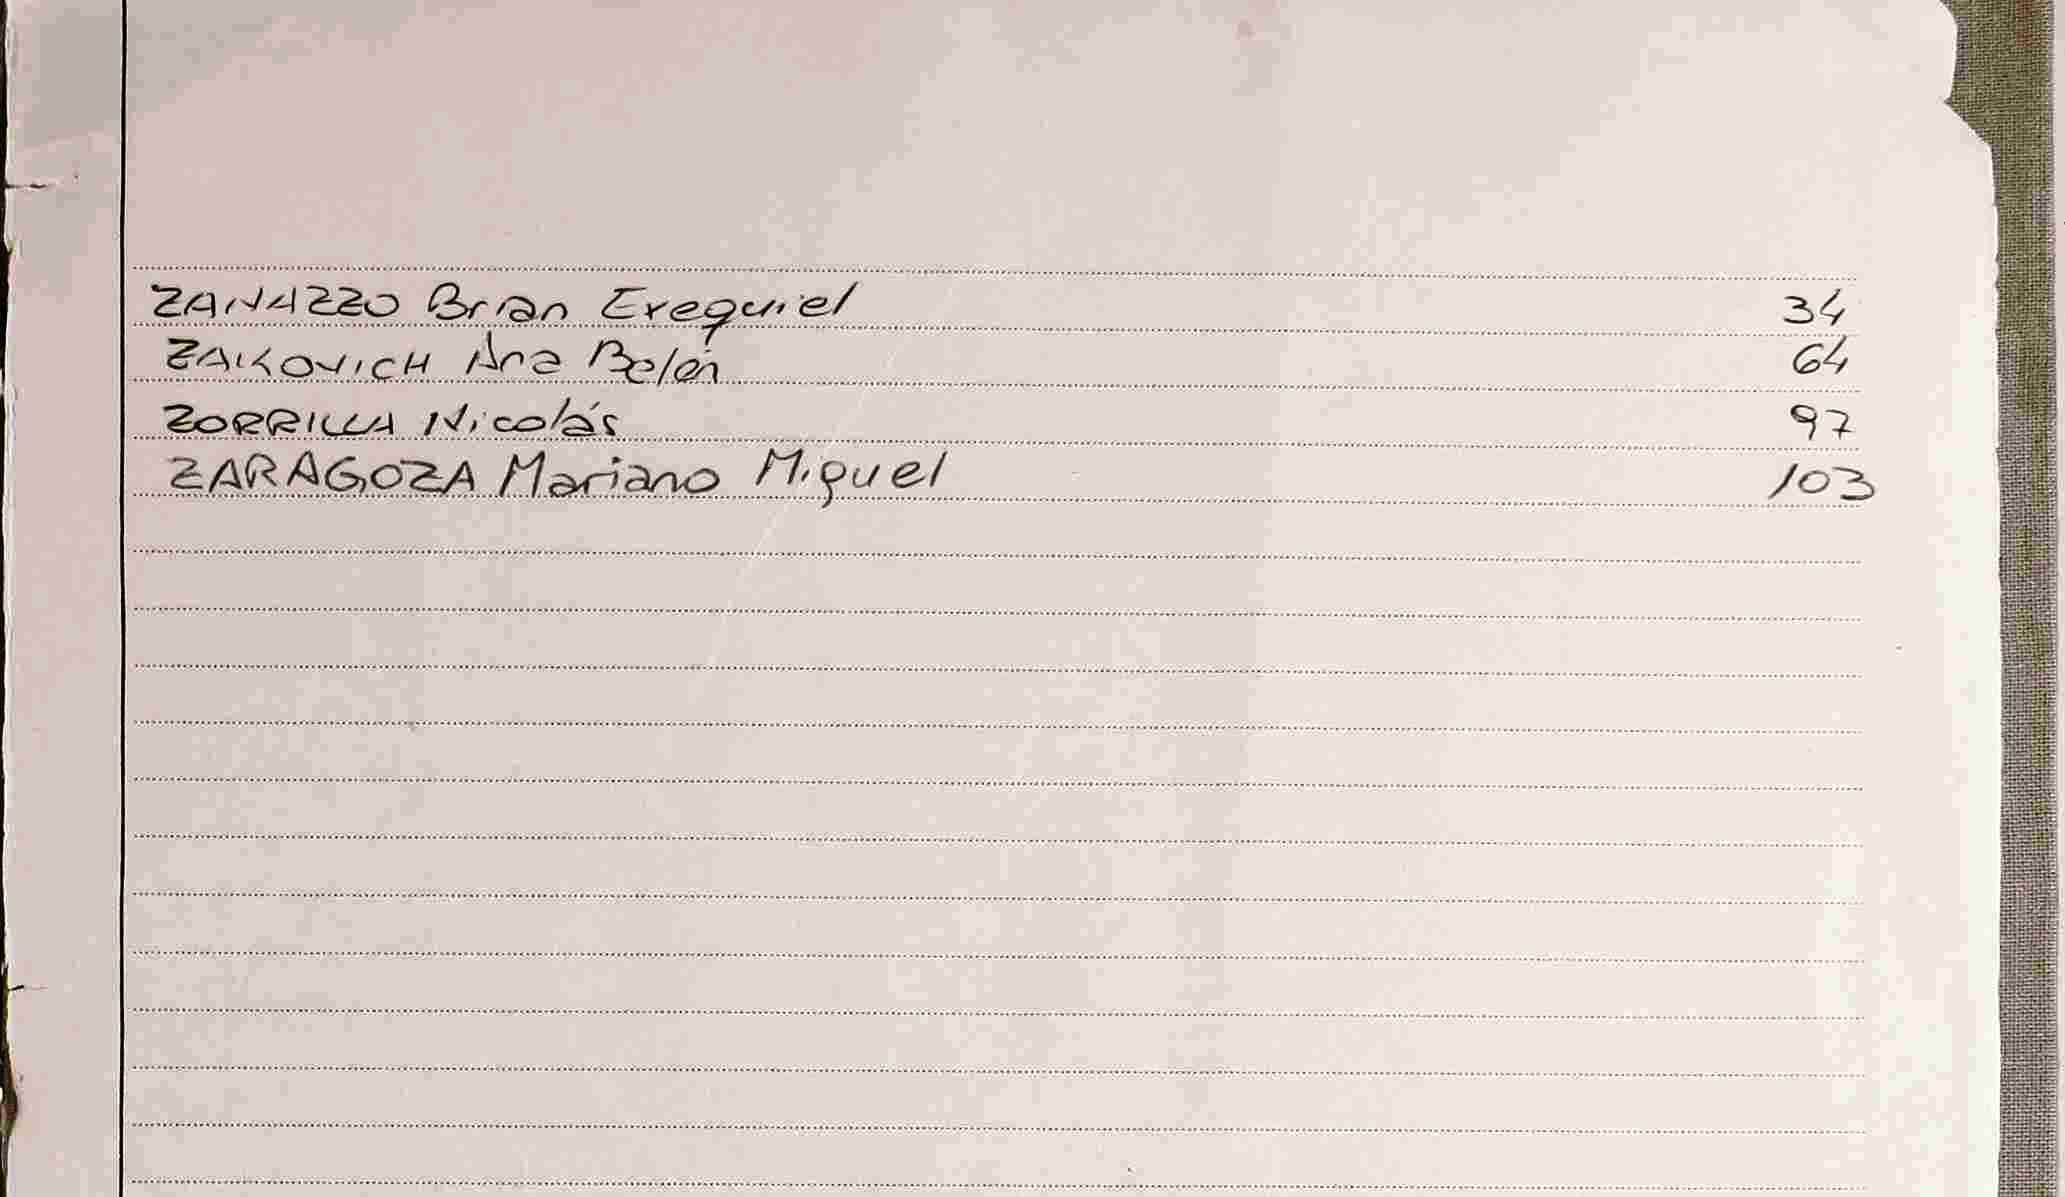 ZANAZZO Brian Exequiel 34
ZAIKOVICH Ana Belén 64
ZORRILLA Nicolás 97
ZARAGOZA Mariano Miguel 103